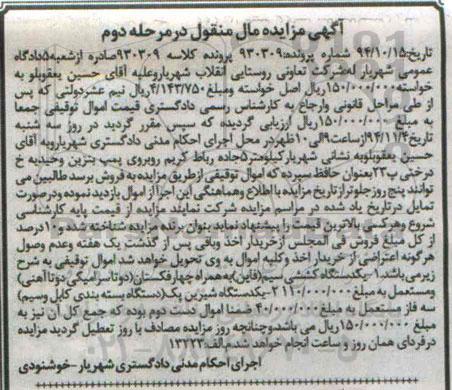 آگهی مزایده مال منقول در مرحله دوم
تاریخ:۹۴/۱۰/۱۵ شماره پرونده:۹۳۰۳۰۹ پرونده کلاسه ۹۳۰۳۰۹صادره ازشعبه۵دادگاه
عمومی شهریار له‌شرکت تعاونی روستایی انقلاب شهریاروعلیه آقای حسین یعقوبلو به
خواسته۱۵۰/۰۰۰/۰۰۰ریال اصل خواسته ومبلغ۴/۱۴۳/۷۵۰ریال نیم عشردولتی که پس
از طی مراحل قانونی وارجاع به کارشناس رسمی دادگستری قیمت اموال توقیفی جمعا
به مبلغ ۱۵۰/۰۰۰/۰۰۰ریال ارزیابی گردیده که سپس مقرر گردید در روز سه شنبه
تاریخ۹۴/۱۱/۴ازساعت۹الی ۱۰ظهردر محل اجرای احکام مدنی دادگستری شهریاربه آقای
حسین یعقوبلوبه نشانی شهریارکیلومتر۵جاده رباط کریم روبروی پمپ بنزین وحیدیه خ
درختی پ۲۳بعنوان حافظ سپرده که اموال توقیفی ازطریق مزایده به فروش برسد طالبین می
توانند پنج روزجلوتراز تاریخ مزایده با اطلاع وهماهنگی این اجرا از اموال بازدید نموده ودرصورت
تمایل درتاریخ یاد شده در مراسم مزایده شرکت نمایند مزایده از قیمت پایه کارشناسی
شروع وهرکسی بالاترین قیمت را پیشنهاد نماید بعنوان برنده مزایده شناخته شده و۱۰درصد
از کل مبلغ فروش فی المجلس ازخریدار اخذ وباقی پس از گذشت یک هفته وعدم وصول
هرگونه اعتراضی از خریدار اخذ وکلیه اموال به وی تحویل خواهد شد اموال توقیفی به شرح
زیرمی باشد.۱-یکدستگاه کفشی (قاین)به همراه چهارفکستان(دوتاسرامیکی دوتاآهنی)
ومستعمل به مبلغ ۱۱۰/۰۰۰/۰۰۰ ۲-یکدستگاه شیرین پک(دستگاه بسته بندی کابل وسیم)
سه فاز مستعمل به مبلغ ۴۰/۰۰۰/۰۰۰ ضمنا اموال دست دوم بوده که جمع کل آن نیز به
مبلغ ۱۵۰/۰۰۰/۰۰۰ریال می باشدوچنانچه روز مزایده مصادف با روز تعطیل گردید مزایده
درفردای همان روز و ساعت انجام خواهد شدم.الف:۱۳۲۲۳
اجرای احکام مدنی دادگستری شهریار-خوشنودی